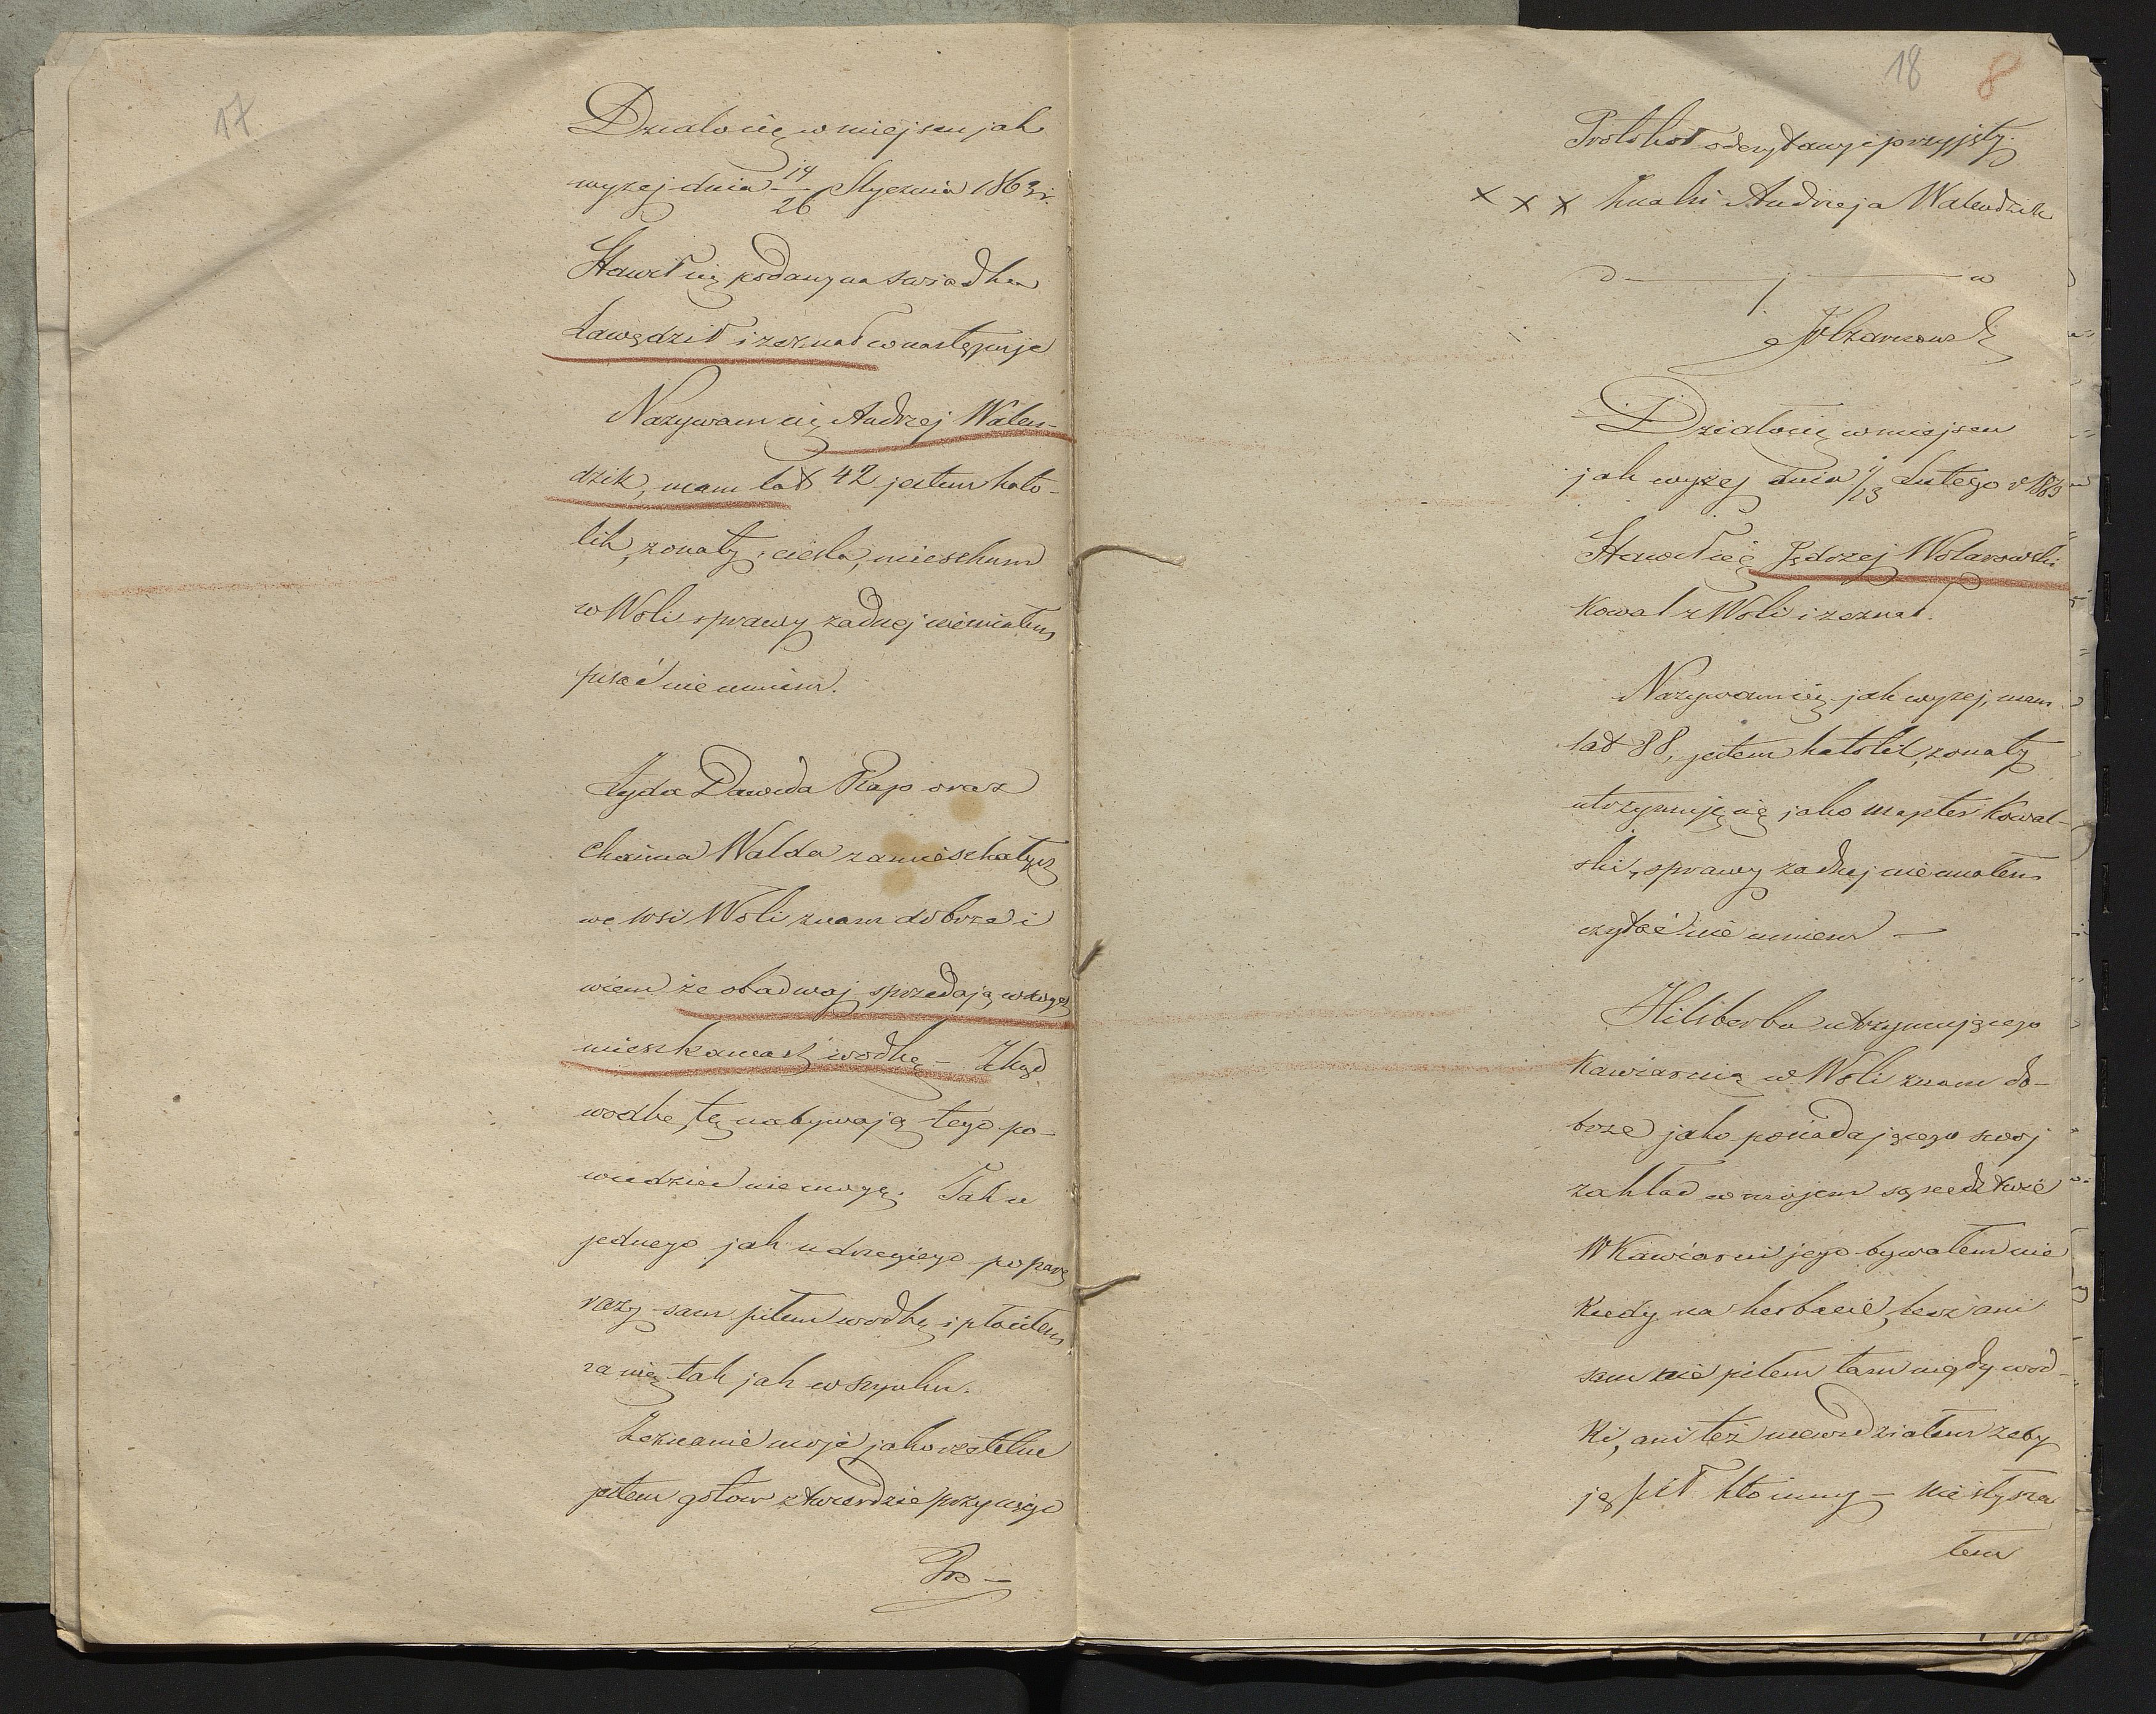 17
Działo się w miejscu jak
wyżej dnia 14/26 Stycznia 1863 r.
Stawił się podany na swiadka
i zeznał co następuje
Nazywam się Andrzej Walen-
dzik, mam lat 42 jestem kato-
lik, żonaty, ciesla, mieszkam
w Woli sprawy żadnej niemiałem
pisać nie umiem.
Żyda Dawida Rap oraz
Chaima Walda zamieszkałych
we wsi Woli znam dobrze i
wiem że obadwaj sprzedają w swych
mieszkaniach wodkę – Zkąd
wodkę tę nabywają tego po-
wiedzieć nie mogę. Tak u
jednego jak u drugiego po parę
razy sam piłem wodkę i płaciłem
za nię tak jak w szynku.
Zeznanie moje jako rzetelne
jestem gotów stwierdzić przysięgą
Pro –
18
8
Protokoł odczytany i przyjęty.
x x x znaki Andrzeja Walendzik
Działo się w miejscu
jak wyżej dnia 1/13 Lutego r 1863
Stawił się Jędrzej Wolanowski
Kowal z Woli i zeznał.
Nazywam się jak wyżej, mam
lat 88, jestem katolik, żonaty
utrzymuję się jako majster Kowal-
ski, sprawy żadnej nie miałem
czytać nie umiem –
utrzymującego
Kawiarnią w Woli znam do-
brze jako posiadającego swoj
zakład w mojem sąsiedztwie
W Kawiarni jego bywałem nie
kiedy na herbacie, lecz ani
sam nie piłem tam nigdy wod-
ki, ani też niewidziałem żeby
ją pił kto inny – nie słysza
łem